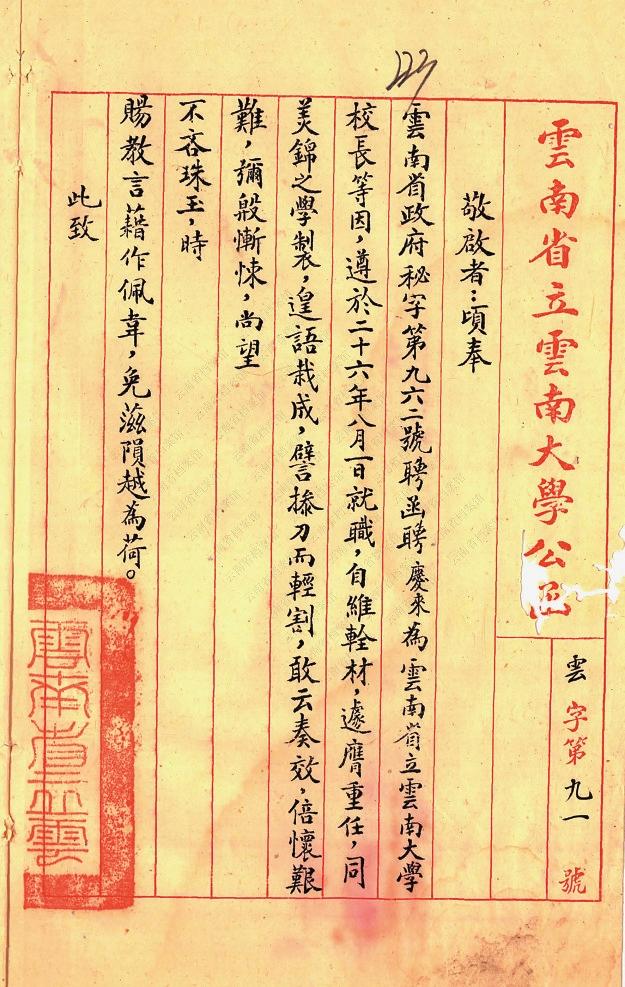 123
雲南省立雲南大學公函
雲字第九一號
敬啟者：頃奉
雲南省政府秘字第九六二號聘函聘慶來為雲南省立雲南大學
校長等因，遵於二十六年八月一日就職，自維輇材，遽膺重任，同
美錦之學製，遑語栽成，譬捺刀而輕割，敢云奏效，倍懷艱
難，彌殷慚悚，尚望
不吝珠玉，時
賜教言藉作佩韋，免滋隕越為荷。
此致
雲南省立雲